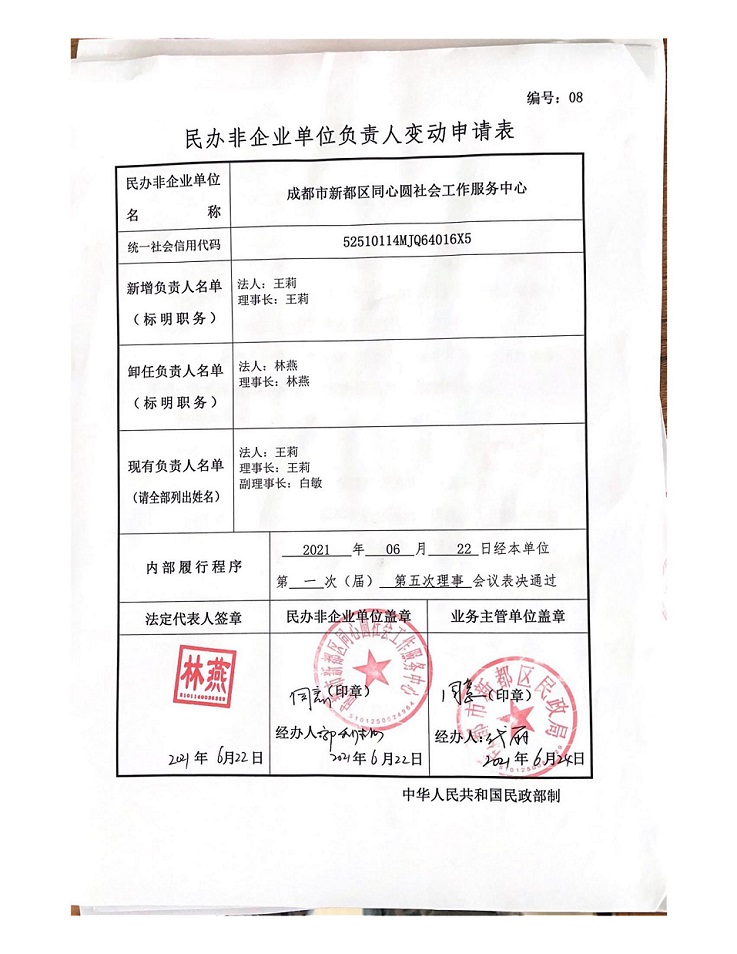 编号：08
民办非企业单位负责人变动申请表
民办非企业单位
名 称
成都市新都区同心圆社会工作服务中心
统一社会信用代码
52510114MJQ64016X5
新增负责人名单
（标明职务）
法人：王莉
理事长：王莉
卸任负责人名单
（标明职务）
法人：林燕
理事长：林燕
现有负责人名单
（请全部列出姓名）
法人：王莉
理事长：王莉
副理事长：白敏
内部履行程序
2021 年 06 月 22 日经本单位
第 一 次（届） 第五次理事 会议表决通过
法定代表人签章
民办非企业单位盖章
业务主管单位盖章
林燕
2021年6月22日
成都市新都区同心圆社会工作服务中心
5101250024964
同意（印章）
经办人：
2021年6月22日
成都市新都区民政局
同意（印章）
经办人：代丽
2021年6月24日
中华人民共和国民政部制